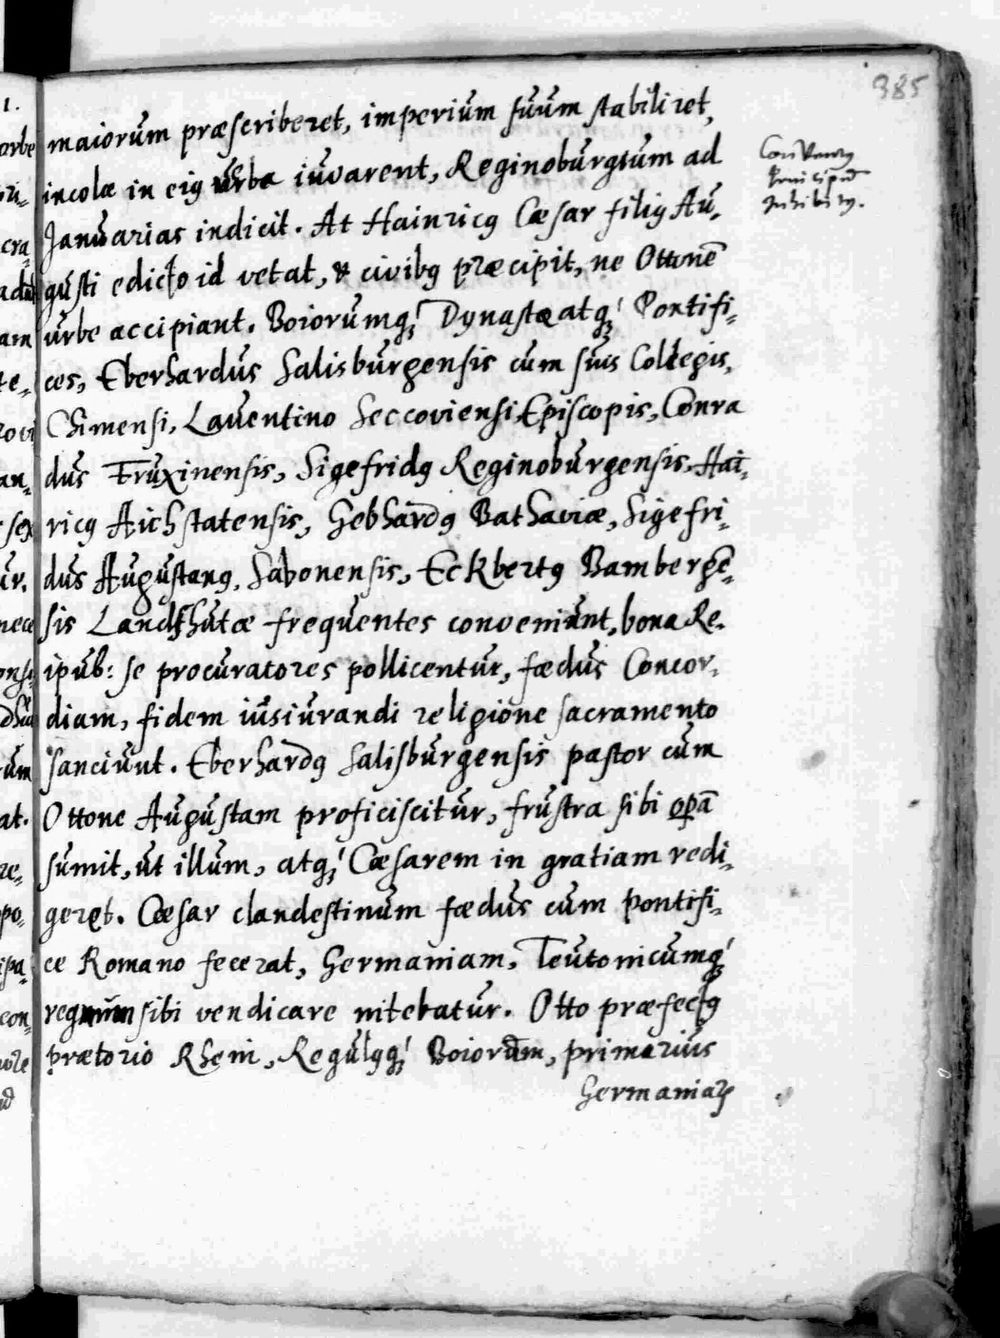 385
maiorum præscriberet, imperium suum stabiliret,
incolæ in eiꝰ urbe iuvarent, Reginoburgium ad
Januarias indicit. At Hainricꝰ Cæsar filiꝰ Au,
gusti edicto id vetat, & civibꝰ præcipit, ne Ottonē
urbe accipiant. Boiorumq́; Dynastæ atq́; Pontifi,
ces, Eberhardus Salisburgensis cum suis Collegis,
Chimensi, Laventino Seccoviensi Episcopis, Conra
dus Fruxinensis, Sigefridꝰ Reginoburgensis, Hai,
ricꝰ Aichstatensis, Gebhardꝰ Bathaviæ, Sigefri,
dus Augustanꝰ, Sabonensis, Eckbertꝰ Bambergē,
sis Landshutæ frequentes conveniunt, bona Re,
ipub: se procuratores pollicentur, fœdus Concor,
diam, fidem iusiurandi religione sacramento
sanciunt. Eberhardꝰ Salisburgensis pastor cum
Ottone Augustam proficiscitur, frustra sibi operā
sumit, ut illum, atq́; Cæsarem in gratiam redi,
geret. Cæsar clandestinum fœdus cum Pontifi,
ce Romano fecerat, Germaniam, Teutonicumq́;
regnum sibi vendicare nitebatur. Otto præfectꝰ
prætorio Rheni, Regulꝰq́; Boiorum, primarius
Germaniaꝝ
Conventꝰ
Principum